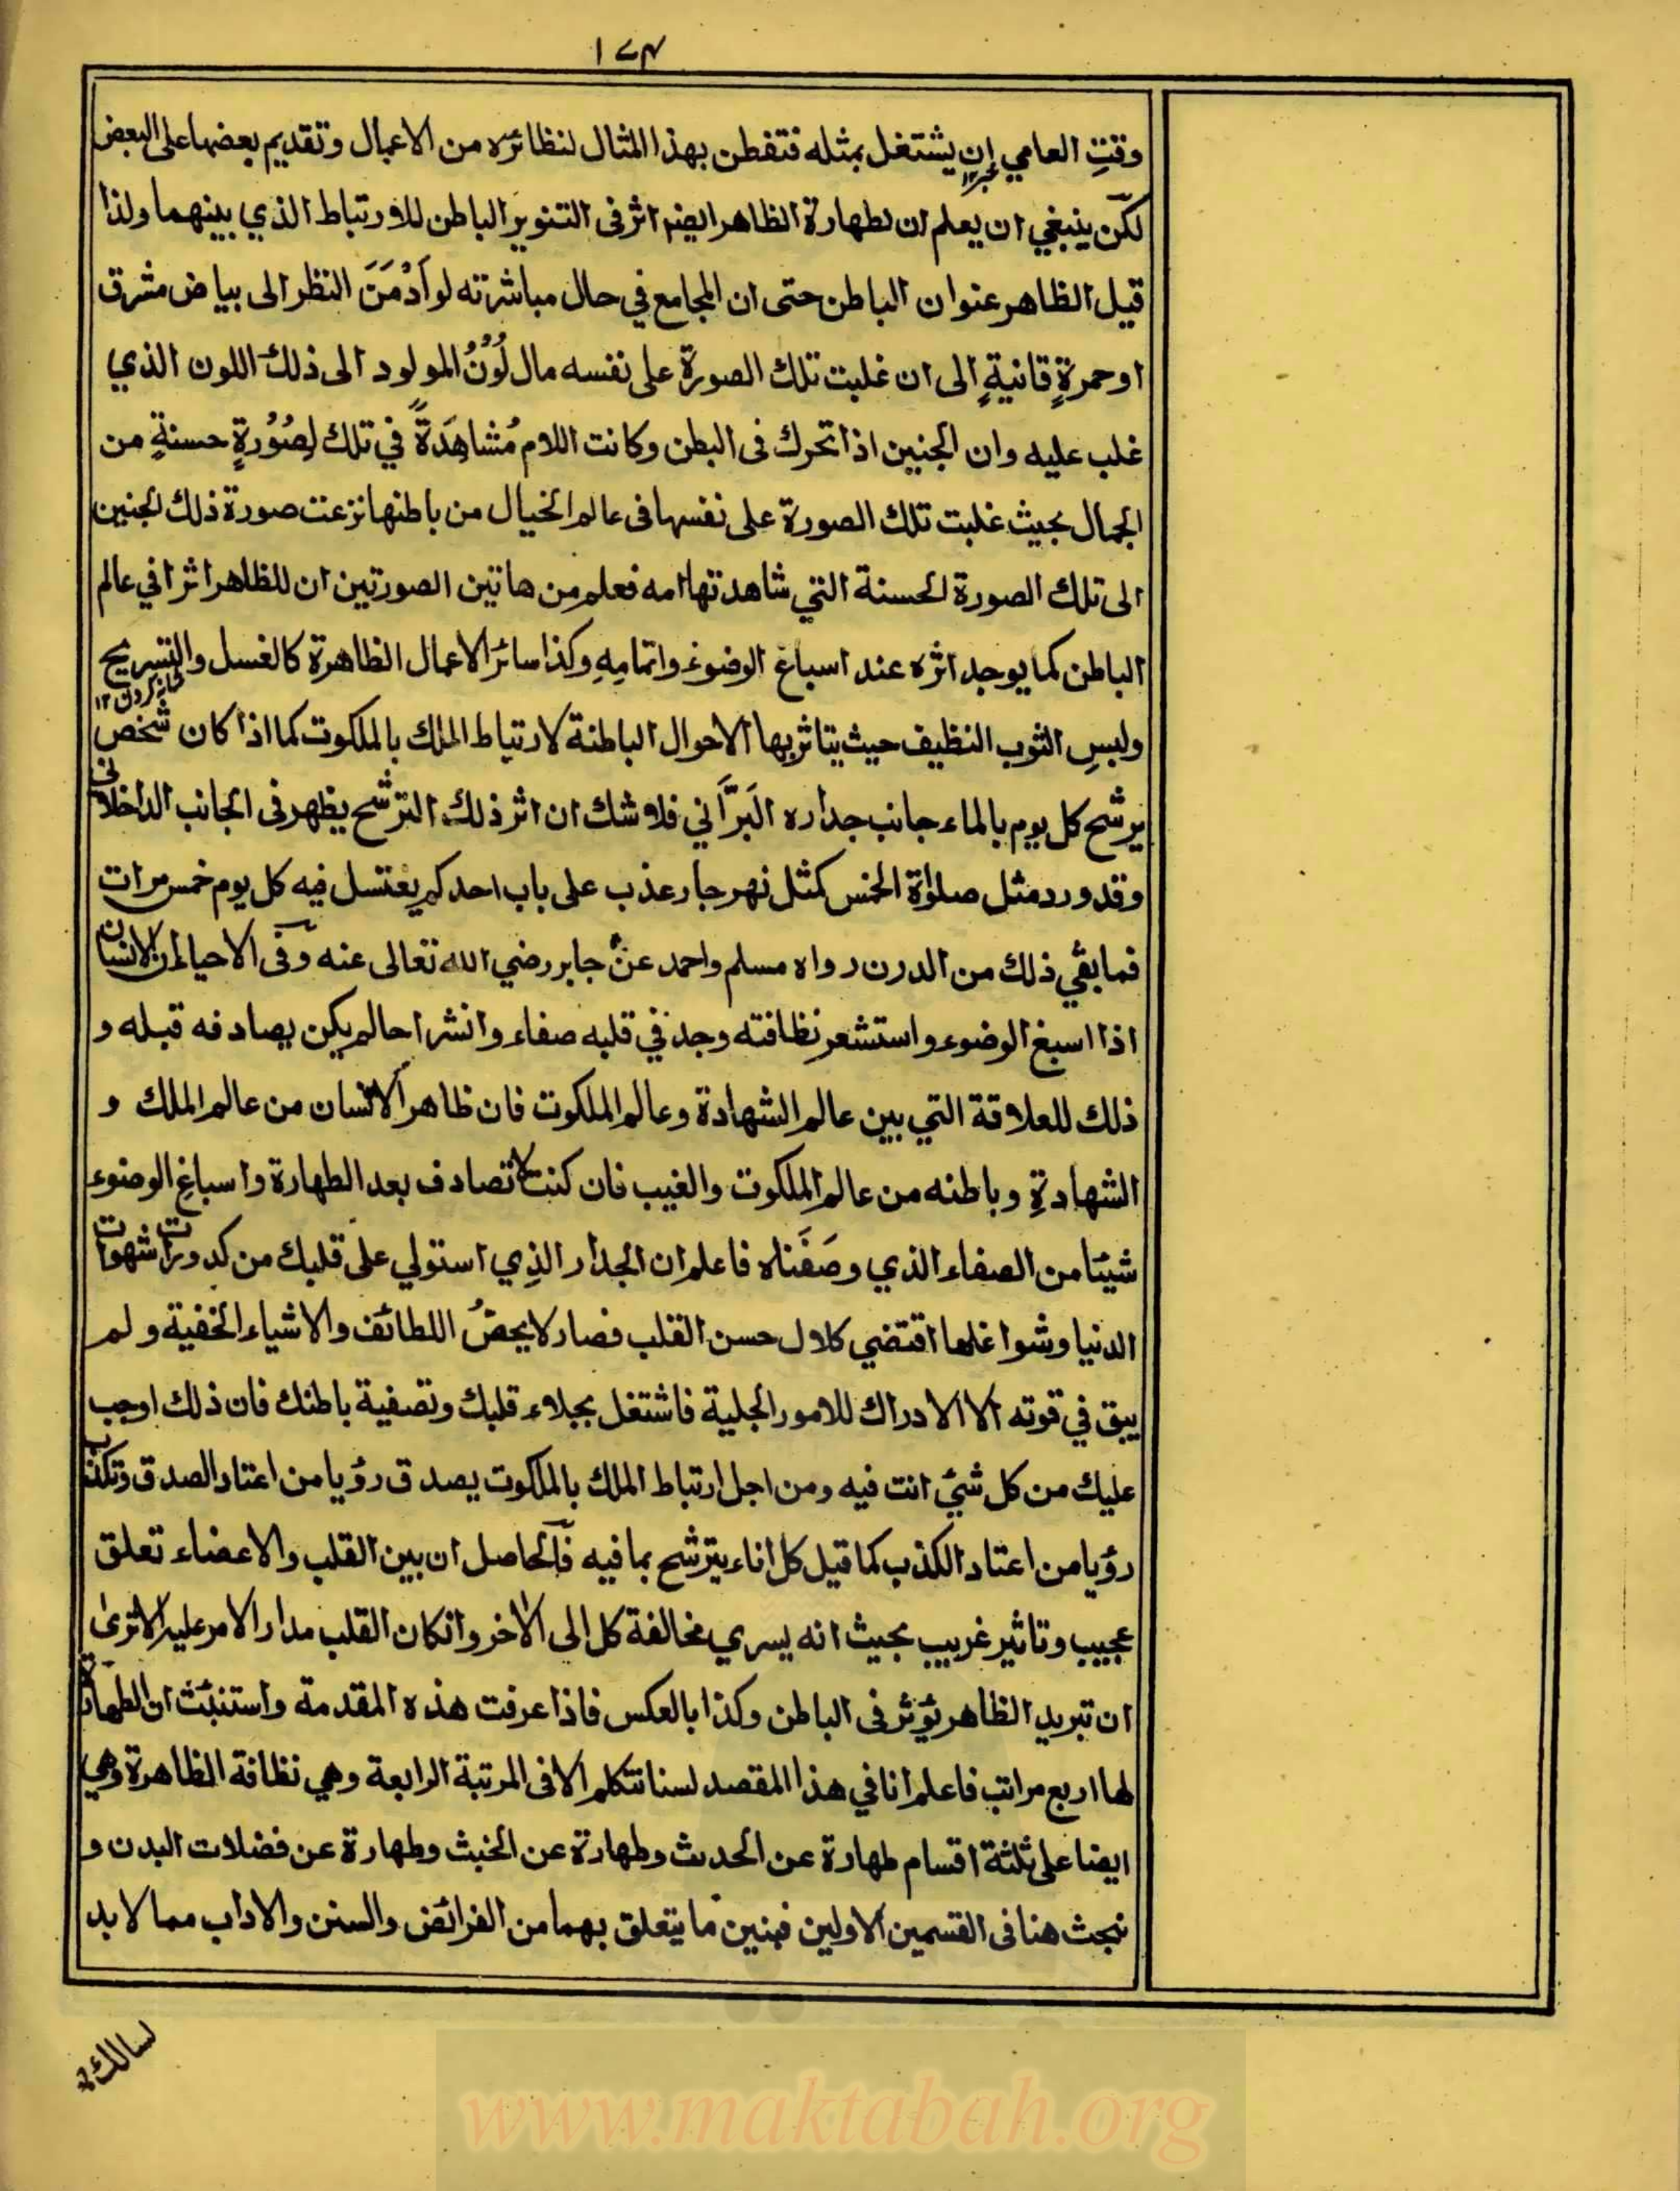 ١٧٤
وقتِ العامي إن يشتغل بمثله فتفطن بهذا المثال لنظائره من الاعمال وتقديم بعضها على البعض
لكن ينبغي ان يعلم ان لطهارة الظاهر ايضا اثر فى التنوير الباطن للارتباط الذي بينهما ولذا
قيل الظاهر عنوان الباطن حتى ان المجامع في حال مباشرته لو اَدْمَنَ النظر الى بياض مشرق
او حمرةٍ قانيةٍ الى ان غلبت تلك الصورة على نفسه مال لَوْنُ المولود الى ذلك اللون الذي
غلب عليه وان الجنين اذا تحرك فى البطن وكانت الام مُشاهِدَةً في تلك لِصُوْرةٍ حسنةٍ من
الجمال بحيث غلبت تلك الصورة على نفسها فى عالم الخيال من باطنها نزعت صورة ذلك الجنين
الى تلك الصورة الحسنة التي شاهدتها امه فعلم من هاتين الصورتين ان للظاهر اثرا في عالم
الباطن كما يوجد اثره عند اسباغ الوضوء واتمامِهِ وكذا سائر الاعمال الظاهرة كالغسل والتسريح
شانه كردن ١٢
ولبسِ الثوب النظيف حيث يتاثر بها الاحوال الباطنة لارتباط الملك بالملكوت كما اذا كان شخص
يرشح كل يوم بالماء جانب جداره البَرَّاني فلا شك ان اثر ذلك الترشح يظهر فى الجانب الداخلاني
وقد ورد مثل صلواة الخمس كمثل نهر جار عذب على باب احدكم يغتسل فيه كل يوم خمس مرات
فما يبقي ذلك من الدرن رواه مسلم واحمد عن جابر رضي الله تعالى عنه وفى الاحياء ان الانسان
اذا اسبغ الوضوء واستشعر نظافته وجد في قلبه صفاء وانشراحا لم يكن يصادفه قبله و
ذلك للعلاقة التي بين عالم الشهادة وعالم الملكوت فان ظاهر الانسان من عالم الملك و
الشهادةِ وباطنه من عالم الملكوت والغيب فان كنت لا تصادف بعد الطهارة واسباغ الوضوء
شيئا من الصفاء الذي وصَفَناه فاعلم ان الجدار الذِي استولي على قلبك من كدورات شهوات
الدنيا وشواغلها اقتضي كلال حسن القلب فصار لا يحصُّ اللطائف والاشياء الخفية ولم
يبق في قوته الا الادراك للامور الجلية فاشتغل بجلاء قلبك وتصفية باطنك فان ذلك اوجب
عليك من كل شيء انت فيه ومن اجل ارتباط الملك بالملكوت يصدق رؤيا من اعتاد الصدق وتكذب
رؤيا من اعتاد الكذب كما قيل كل اناء يترشح بما فيه فالحاصل ان بين القلب والاعضاء تعلق
عجيب وتاثير غريب بحيث انه يسري مخالفة كل الى الاخر وانكان القلب مدار الامر عليه الا ترى
ان تبريد الظاهر يؤثر فى الباطن وكذا بالعكس فاذا عرفت هذه المقدمة واستنبئت ان الطهارة
لها اربع مراتب فاعلم انا في هذا المقصد لسنا نتكلم الا فى المرتبة الرابعة وهي نظافة الظاهرة وهي
ايضا على ثلثة اقسام طهارة عن الحدث وطهارة عن الخبث وطهارة عن فضلات البدن و
نبحث هنا فى القسمين الاولين فنبين ما يتعلق بهما من الفرائض والسنن والاداب مما لا بد
لسالك
www.maktabah.org